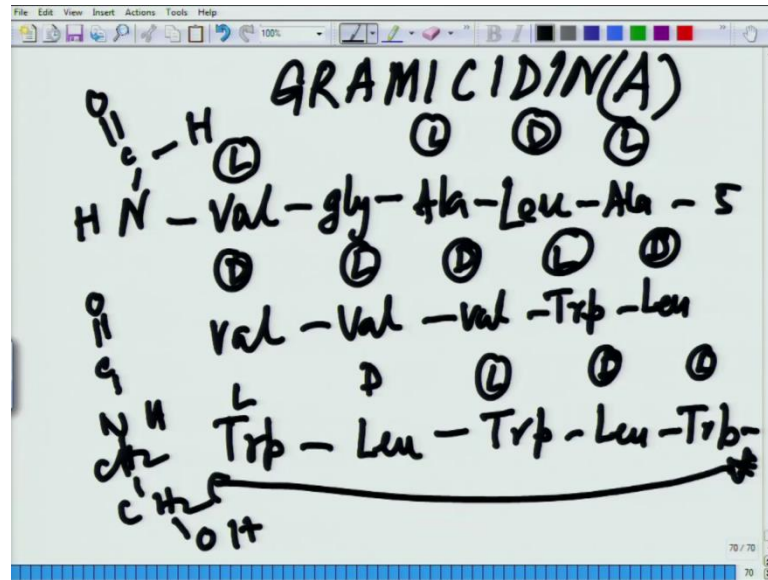 File Edit View Insert Actions Tools Help
100%
B I
GRAMICIDIN(A)
O
C - H
L L D L
H N - Val - gly - Ala - Leu - Ala - 5
D L D L D
Val - Val - Val - Trp - Leu
O
C
L D L D L
N H
Trp - Leu - Trp - Leu - Trp -
CH2
CH2
OH
70 / 70
70